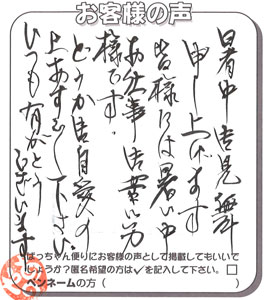 お客様の声
暑中御見舞
申し上げます
皆様には暑い中
お仕事御苦労
様です。
どうか御自愛の
上お過ごし下さい。
いつも有がとう
ございます
ばっちゃん便りにお客様の声として掲載してもいいで
しょうか？匿名希望の方は✓を記入して下さい。□
ペンネームの方（　　　　　　　　）